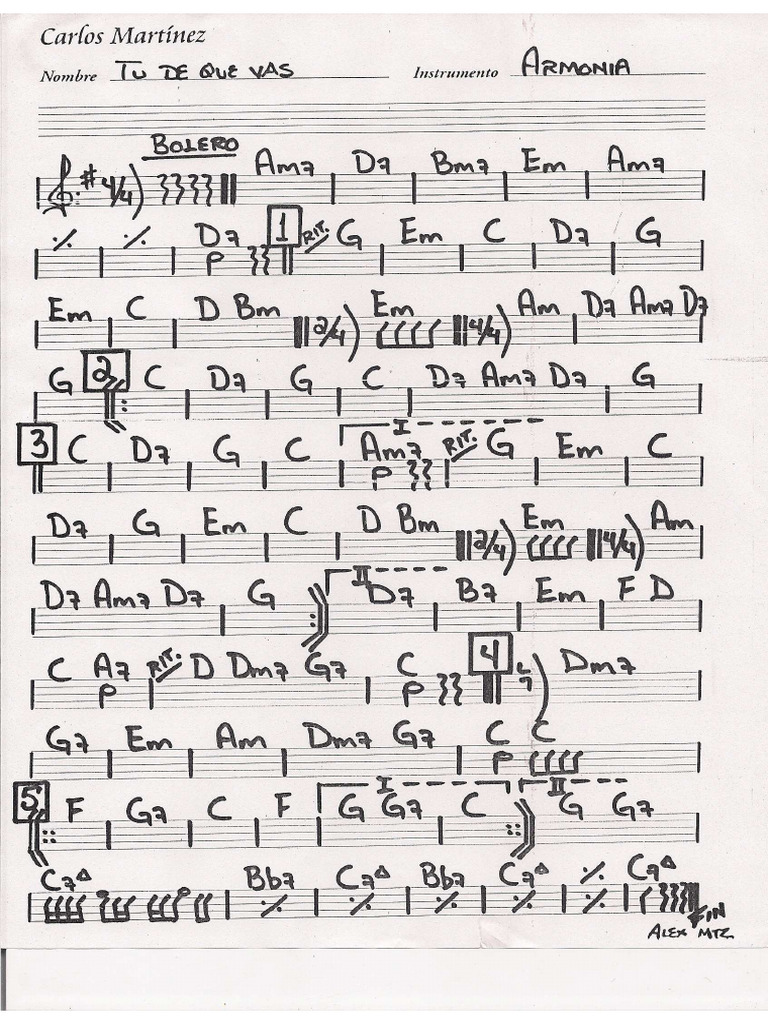 Carlos Martínez
Nombre TU DE QUE VAS Instrumento ARMONIA
BOLERO
# 4/4 Am7 D7 Bm7 Em Am7
٪ ٪ D7 P 1 RIT. G Em C D7 G
Em C D Bm 2/4 Em 4/4 Am D7 Am7 D7
G 2 C D7 G C D7 Am7 D7 G
3 C D7 G C I Am7 P RIT. G Em C
D7 G Em C D Bm 2/4 Em 4/4 Am
D7 Am7 D7 G II D7 B7 Em F D
C A7 P RIT. D Dm7 G7 C P 4 Dm7
G7 Em Am Dm7 G7 C P C
5 F G7 C F I G G7 C II G G7
C7Δ Bb7 C7Δ Bb7 C7Δ ٪ C7Δ
FIN
ALEX MTZ